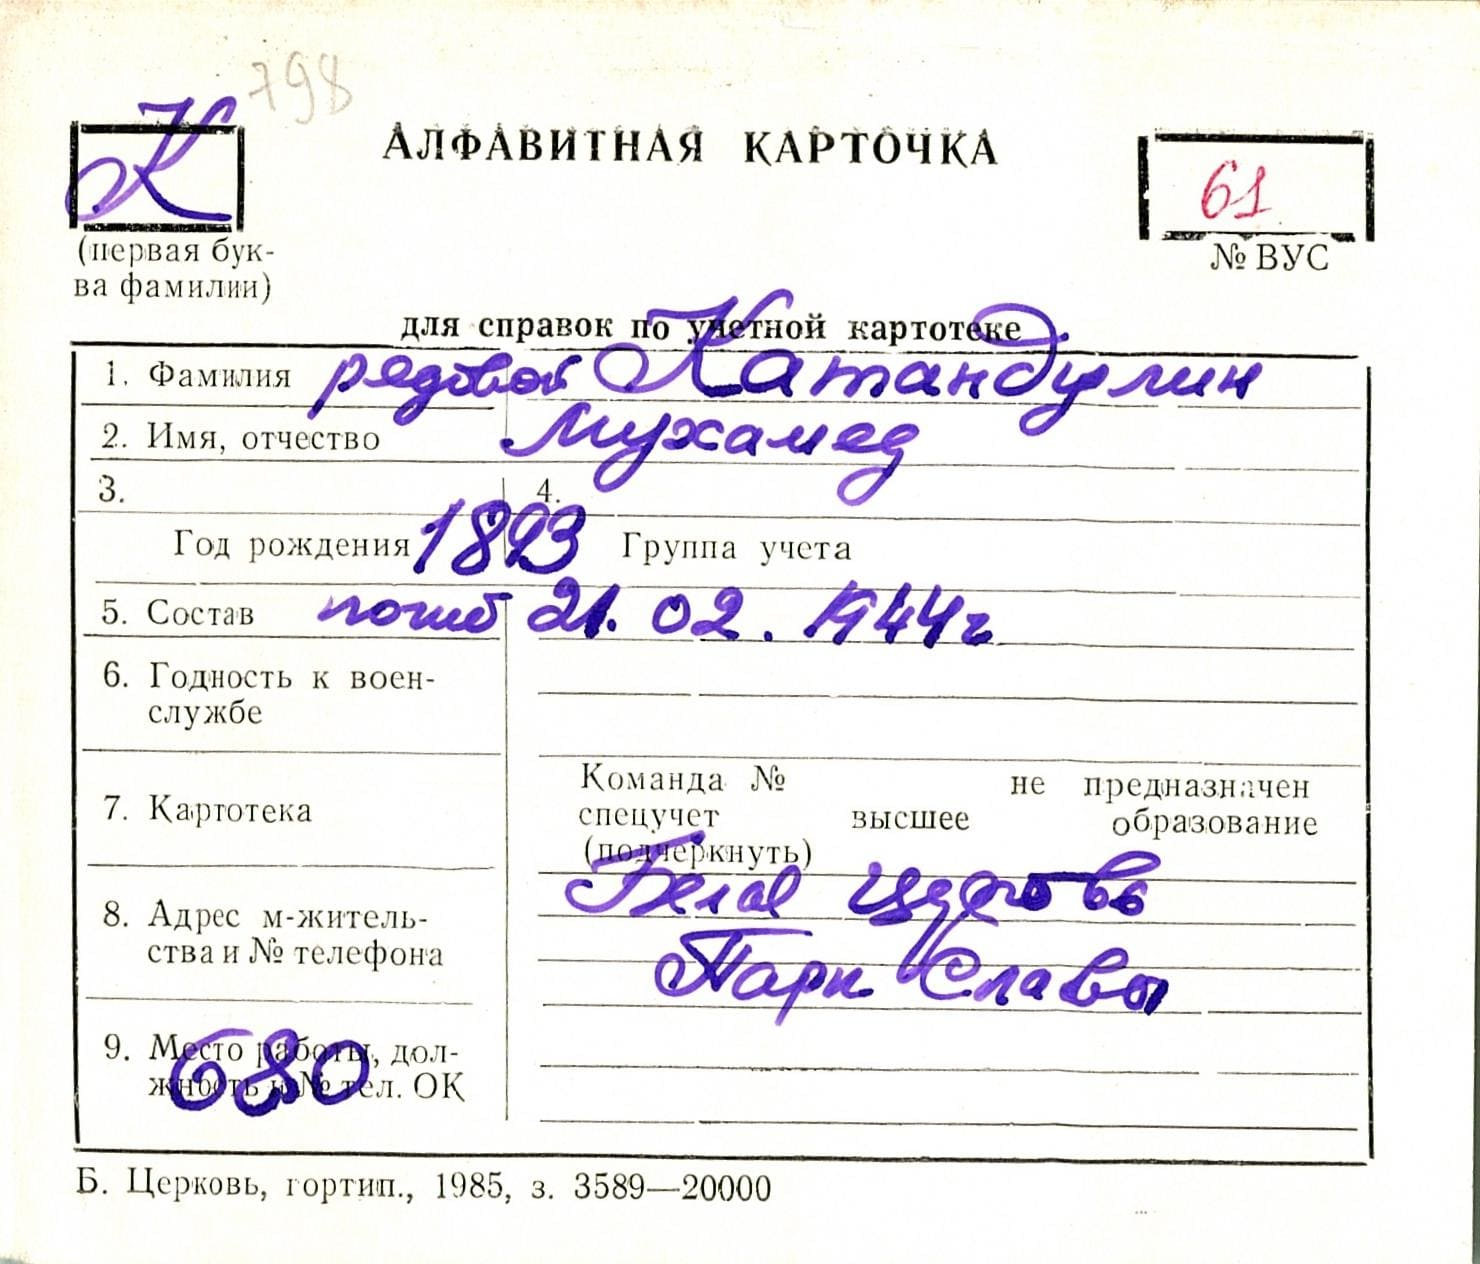 798
К
АЛФАВИТНАЯ КАРТОЧКА
61
(первая бук-
ва фамилии)
№ ВУС
для справок по учетной картотеке
1. Фамилия рядовой Катандулин
2. Имя, отчество Мухамед
3. 4.
Год рождения 1893 Группа учета
5. Состав погиб 21. 02. 1944г
6. Годность к воен-
службе
7. Картотека
Команда № не предназначен
спецучет высшее образование
(подчеркнуть)
8. Адрес м-житель-
ства и № телефона
Белая церковь
Парк Славы
9. Место работы, дол-
жность и № тел. ОК
680
Б. Церковь, гортип., 1985, з. 3589—20000